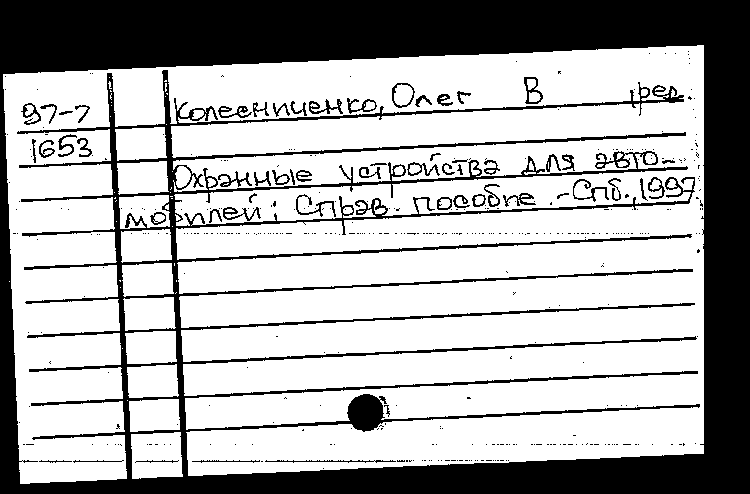 97-7 Колесниченко, Олег В ред.
1653
Охранные устройства для авто-
мобилей: Справ. пособие.-Спб.,1997